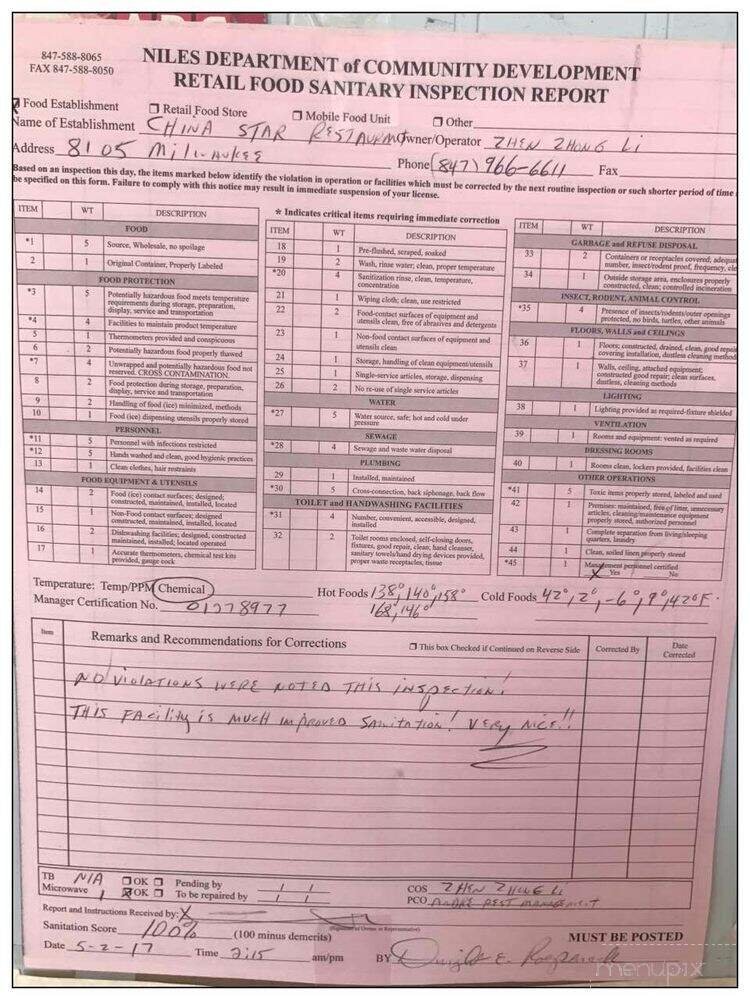 847-588-8065
FAX 847-588-8050
NILES DEPARTMENT of COMMUNITY DEVELOPMENT
RETAIL FOOD SANITARY INSPECTION REPORT
Food Establishment Retail Food Store Mobile Food Unit Other
Name of Establishment CHINA STAR RESTAURANT Owner/Operator ZHEN ZHONG Li
Address 8105 Milwaukee Phone (847) 966-6611 Fax
Based on an inspection this day, the items marked below identify the violation in operation or facilities which must be corrected by the next routine inspection or such shorter period of time
be specified on this form. Failure to comply with this notice may result in immediate suspension of your license.
* Indicates critical items requiring immediate correction
ITEM WT DESCRIPTION
FOOD
*1 5 Source, Wholesale, no spoilage
2 1 Original Container, Properly Labeled
FOOD PROTECTION
*3 5 Potentially hazardous food meets temperature
requirements during storage, preparation,
display, service and transportation
*4 4 Facilities to maintain product temperature
5 1 Thermometers provided and conspicuous
6 2 Potentially hazardous food properly thawed
*7 4 Unwrapped and potentially hazardous food not
reserved. CROSS CONTAMINATION.
8 2 Food protection during storage, preparation,
display, service and transportation
9 2 Handling of food (ice) minimized, methods
10 1 Food (ice) dispensing utensils properly stored
PERSONNEL
*11 5 Personnel with infections restricted
*12 5 Hands washed and clean, good hygienic practices
13 1 Clean clothes, hair restraints
FOOD EQUIPMENT & UTENSILS
14 2 Food (ice) contact surfaces; designed;
constructed, maintained, installed, located
15 1 Non-Food contact surfaces; designed
constructed, maintained, installed, located
16 2 Dishwashing facilities; designed, constructed
maintained, installed; located operated
17 1 Accurate thermometers, chemical test kits
provided, gauge cock
ITEM WT DESCRIPTION
18 1 Pre-flushed, scraped, soaked
19 2 Wash, rinse water; clean, proper temperature
*20 4 Sanitization rinse, clean, temperature,
concentration
21 1 Wiping cloth; clean, use restricted
22 2 Food-contact surfaces of equipment and
utensils clean, free of abrasives and detergents
23 1 Non-food contact surfaces of equipment and
utensils clean
24 1 Storage, handling of clean equipment/utensils
25 1 Single-service articles, storage, dispensing
26 2 No re-use of single service articles
WATER
*27 5 Water source, safe; hot and cold under
pressure
SEWAGE
*28 4 Sewage and waste water disposal
PLUMBING
29 1 Installed, maintained
*30 5 Cross-connection, back siphonage, back flow
TOILET and HANDWASHING FACILITIES
*31 4 Number, convenient, accessible, designed,
installed
32 2 Toilet rooms enclosed, self-closing doors,
fixtures, good repair, clean; hand cleanser,
sanitary towels/hand drying devices provided,
proper waste receptacles, tissue
ITEM WT DESCRIPTION
GARBAGE and REFUSE DISPOSAL
33 2 Containers or receptacles covered; adequate
number, insect/rodent proof, frequency, cle
34 1 Outside storage area, enclosures properly
constructed, clean; controlled incineration
INSECT, RODENT, ANIMAL CONTROL
*35 4 Presence of insects/rodents/outer openings
protected, no birds, turtles, other animals
FLOORS, WALLS and CEILINGS
36 1 Floors; constructed, drained, clean, good repair
covering installation, dustless cleaning method
37 1 Walls, ceiling, attached equipment;
constructed good repair; clean surfaces,
dustless, cleaning methods
LIGHTING
38 1 Lighting provided as required-fixture shielded
VENTILATION
39 1 Rooms and equipment: vented as required
DRESSING ROOMS
40 1 Rooms clean, lockers provided, facilities clean
OTHER OPERATIONS
*41 5 Toxic items properly stored, labeled and used
42 1 Premises: maintained, free of litter, unnecessary
articles, cleaning/maintenance equipment
properly stored, authorized personnel
43 1 Complete separation from living/sleeping
quarters, laundry
44 1 Clean, soiled linen properly stored
*45 1 Management personnel certified
X Yes No
Temperature: Temp/PPM Chemical Hot Foods 138°, 140°, 158° Cold Foods 42°, 2°, -6°, 9°, 42°F.
Manager Certification No. 01278977 168°, 146°
Item Remarks and Recommendations for Corrections This box Checked if Continued on Reverse Side Corrected By Date Corrected
NO VIOLATIONS WERE NOTED THIS INSPECTION!
THIS FACILITY IS MUCH IMPROVED SANITATION! VERY NICE!!
TB N/A OK Pending by / /
Microwave 1 OK To be repaired by / /
COS ZHEN ZHONG Li
PCO PEST MANAGEMENT
Report and Instructions Received by: X
(Signature of Owner or Representative)
Sanitation Score 100% (100 minus demerits) MUST BE POSTED
Date 5-2-17 Time 2:15 am/pm BY Dwight E.
menupix